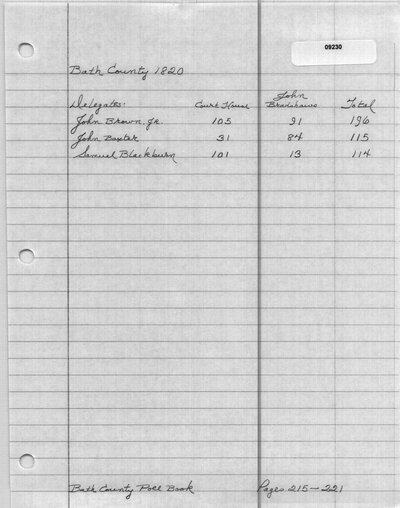 09230
Bath County 1820
John
Delegates: Court House Bradshaws Total
John Brown, Jr. 105 91 196
John Baxter 31 84 115
Samuel Blackburn 101 13 114
Bath County Poll Book Pages 215-221